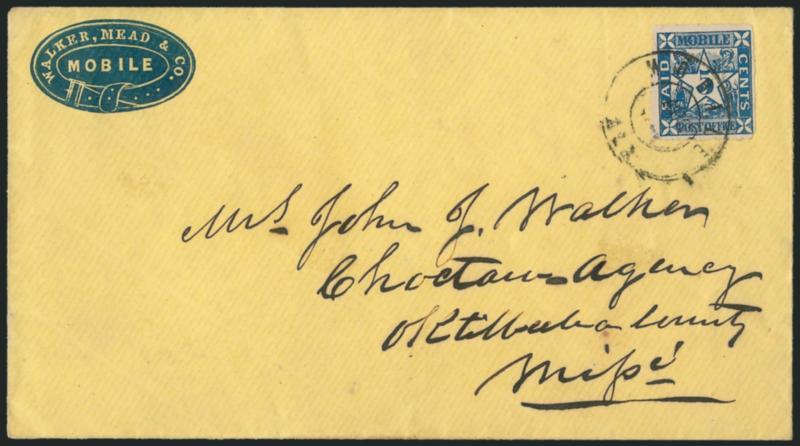 WALKER, MEAD & CO.
MOBILE
MOBILE
PAID
CENTS
POST OFFICE
Mrs John J. Walker
Choctaw Agency
Oktibbeha County
Missi